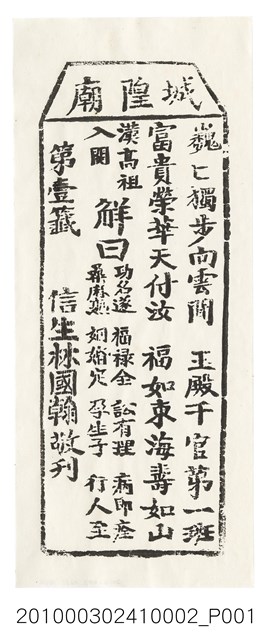 城隍廟
巍〻獨步向雲間　玉殿千官第一班
富貴榮華天付汝　福如東海壽如山
漢高祖入關
解曰
功名遂　福祿全　訟有理　病即痊
桑麻熟　姻婚定　孕生子　行人至
第壹籤　信生林國翰敬刊
201000302410002_P001